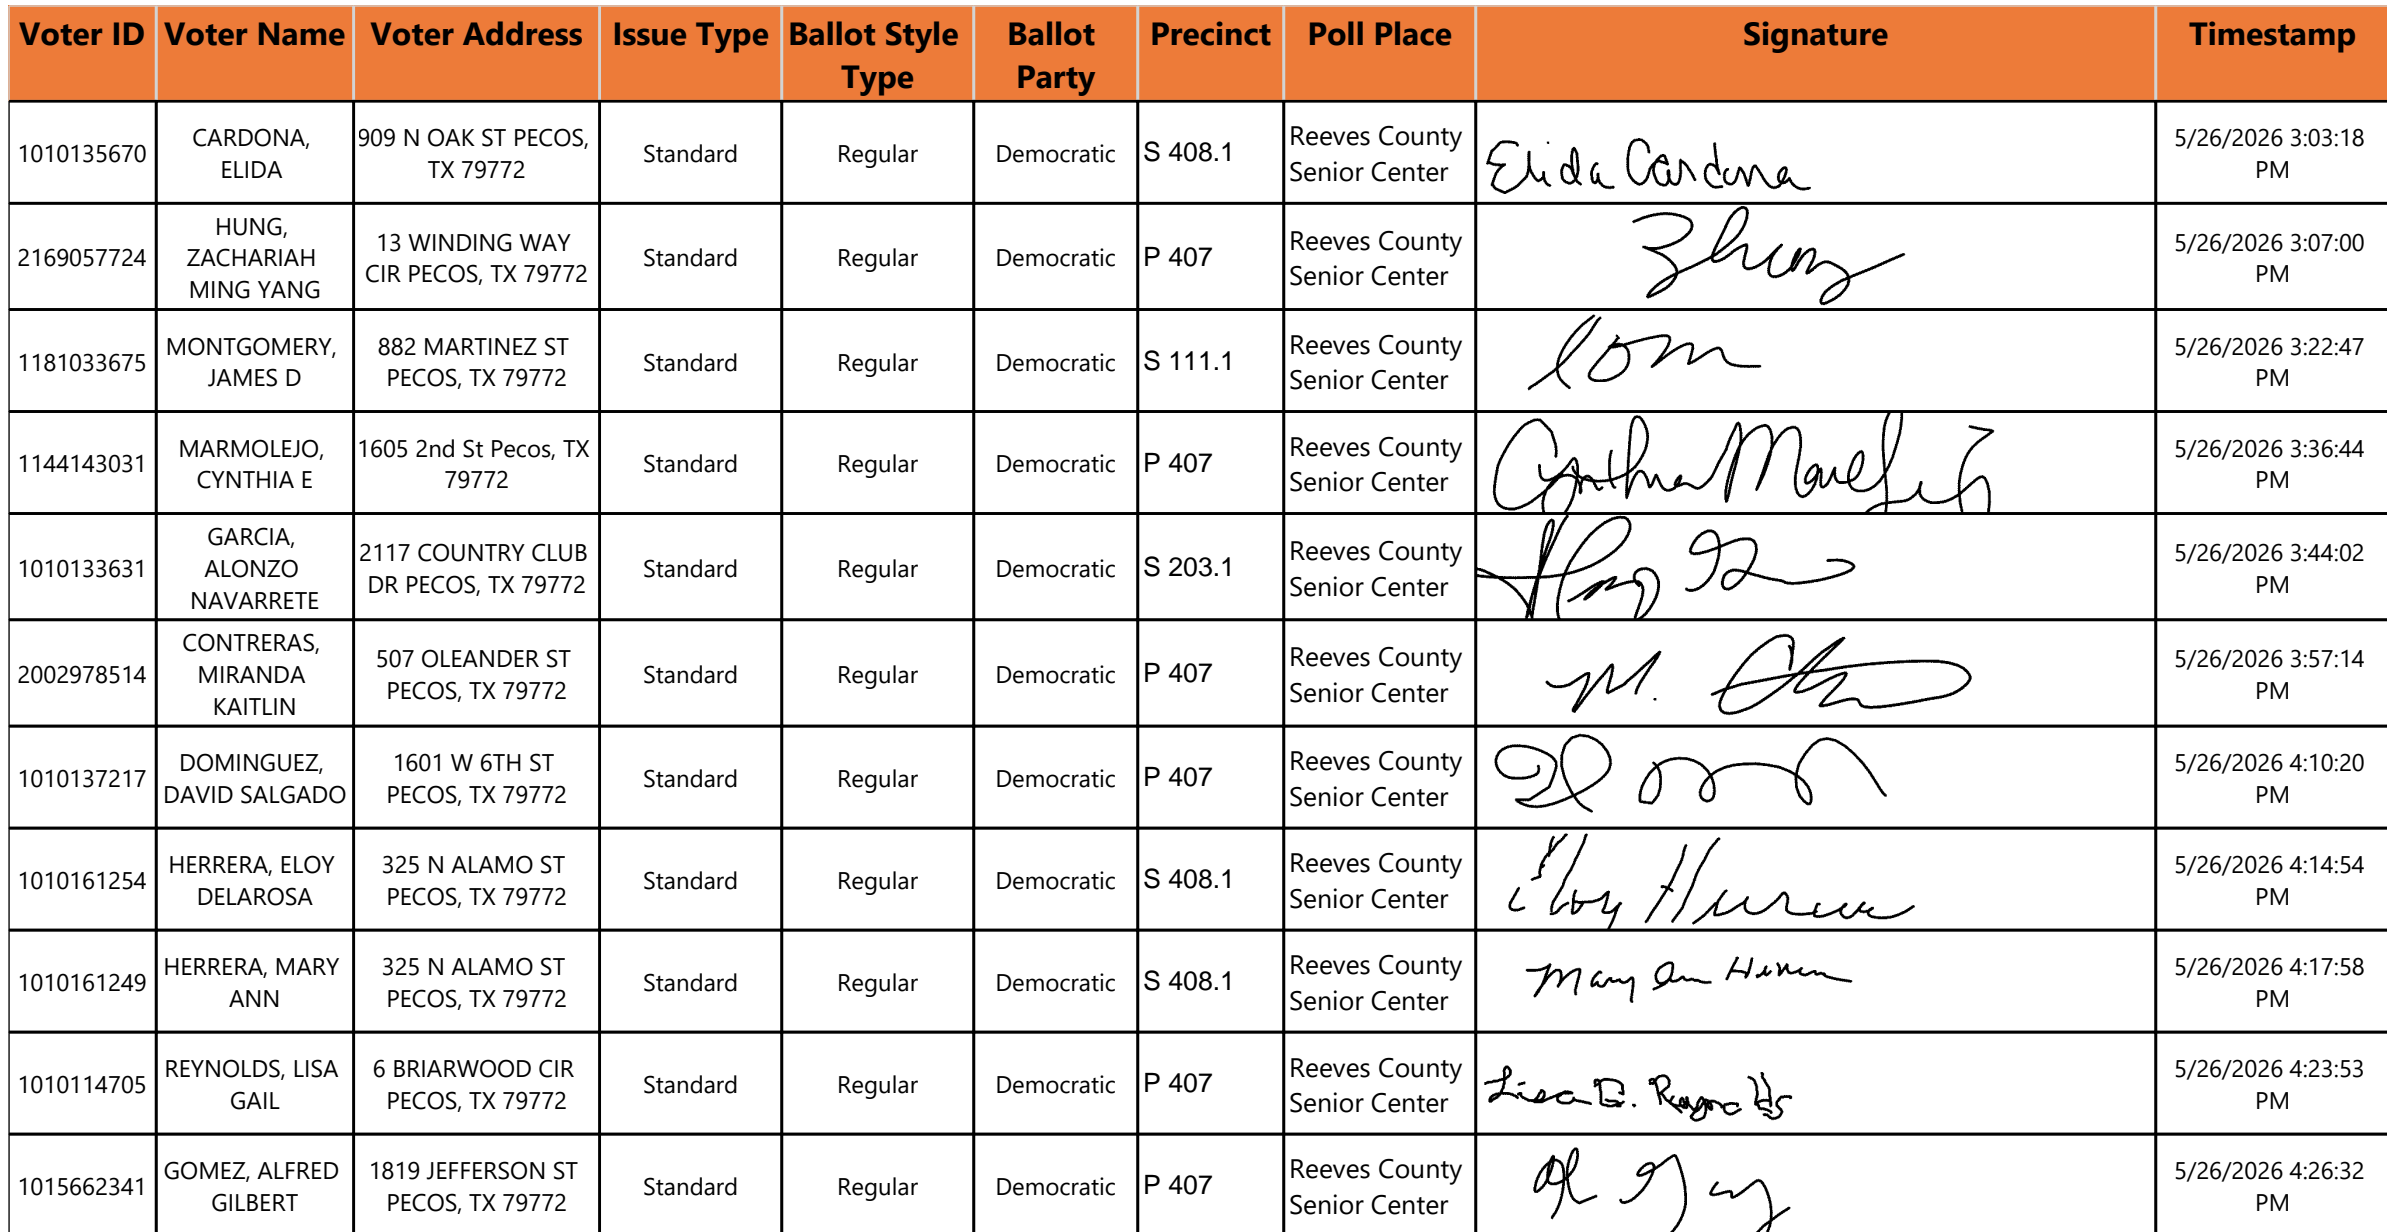 Voter ID Voter Name Voter Address Issue Type Ballot Style Type Ballot Party Precinct Poll Place Signature Timestamp
1010135670 CARDONA, ELIDA 909 N OAK ST PECOS, TX 79772 Standard Regular Democratic S 408.1 Reeves County Senior Center Elida Cardona 5/26/2026 3:03:18 PM
2169057724 HUNG, ZACHARIAH MING YANG 13 WINDING WAY CIR PECOS, TX 79772 Standard Regular Democratic P 407 Reeves County Senior Center Zhung 5/26/2026 3:07:00 PM
1181033675 MONTGOMERY, JAMES D 882 MARTINEZ ST PECOS, TX 79772 Standard Regular Democratic S 111.1 Reeves County Senior Center 5/26/2026 3:22:47 PM
1144143031 MARMOLEJO, CYNTHIA E 1605 2nd St Pecos, TX 79772 Standard Regular Democratic P 407 Reeves County Senior Center Cynthia 5/26/2026 3:36:44 PM
1010133631 GARCIA, ALONZO NAVARRETE 2117 COUNTRY CLUB DR PECOS, TX 79772 Standard Regular Democratic S 203.1 Reeves County Senior Center 5/26/2026 3:44:02 PM
2002978514 CONTRERAS, MIRANDA KAITLIN 507 OLEANDER ST PECOS, TX 79772 Standard Regular Democratic P 407 Reeves County Senior Center M. 5/26/2026 3:57:14 PM
1010137217 DOMINGUEZ, DAVID SALGADO 1601 W 6TH ST PECOS, TX 79772 Standard Regular Democratic P 407 Reeves County Senior Center 5/26/2026 4:10:20 PM
1010161254 HERRERA, ELOY DELAROSA 325 N ALAMO ST PECOS, TX 79772 Standard Regular Democratic S 408.1 Reeves County Senior Center Eloy Herrera 5/26/2026 4:14:54 PM
1010161249 HERRERA, MARY ANN 325 N ALAMO ST PECOS, TX 79772 Standard Regular Democratic S 408.1 Reeves County Senior Center Mary Ann Herrera 5/26/2026 4:17:58 PM
1010114705 REYNOLDS, LISA GAIL 6 BRIARWOOD CIR PECOS, TX 79772 Standard Regular Democratic P 407 Reeves County Senior Center Lisa G. Reynolds 5/26/2026 4:23:53 PM
1015662341 GOMEZ, ALFRED GILBERT 1819 JEFFERSON ST PECOS, TX 79772 Standard Regular Democratic P 407 Reeves County Senior Center 5/26/2026 4:26:32 PM